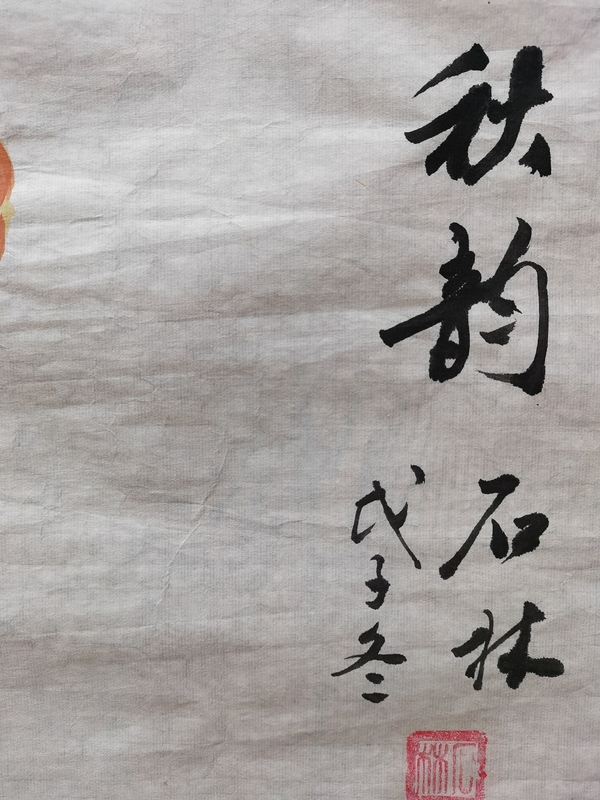 秋韵
石林
戊子冬
石林